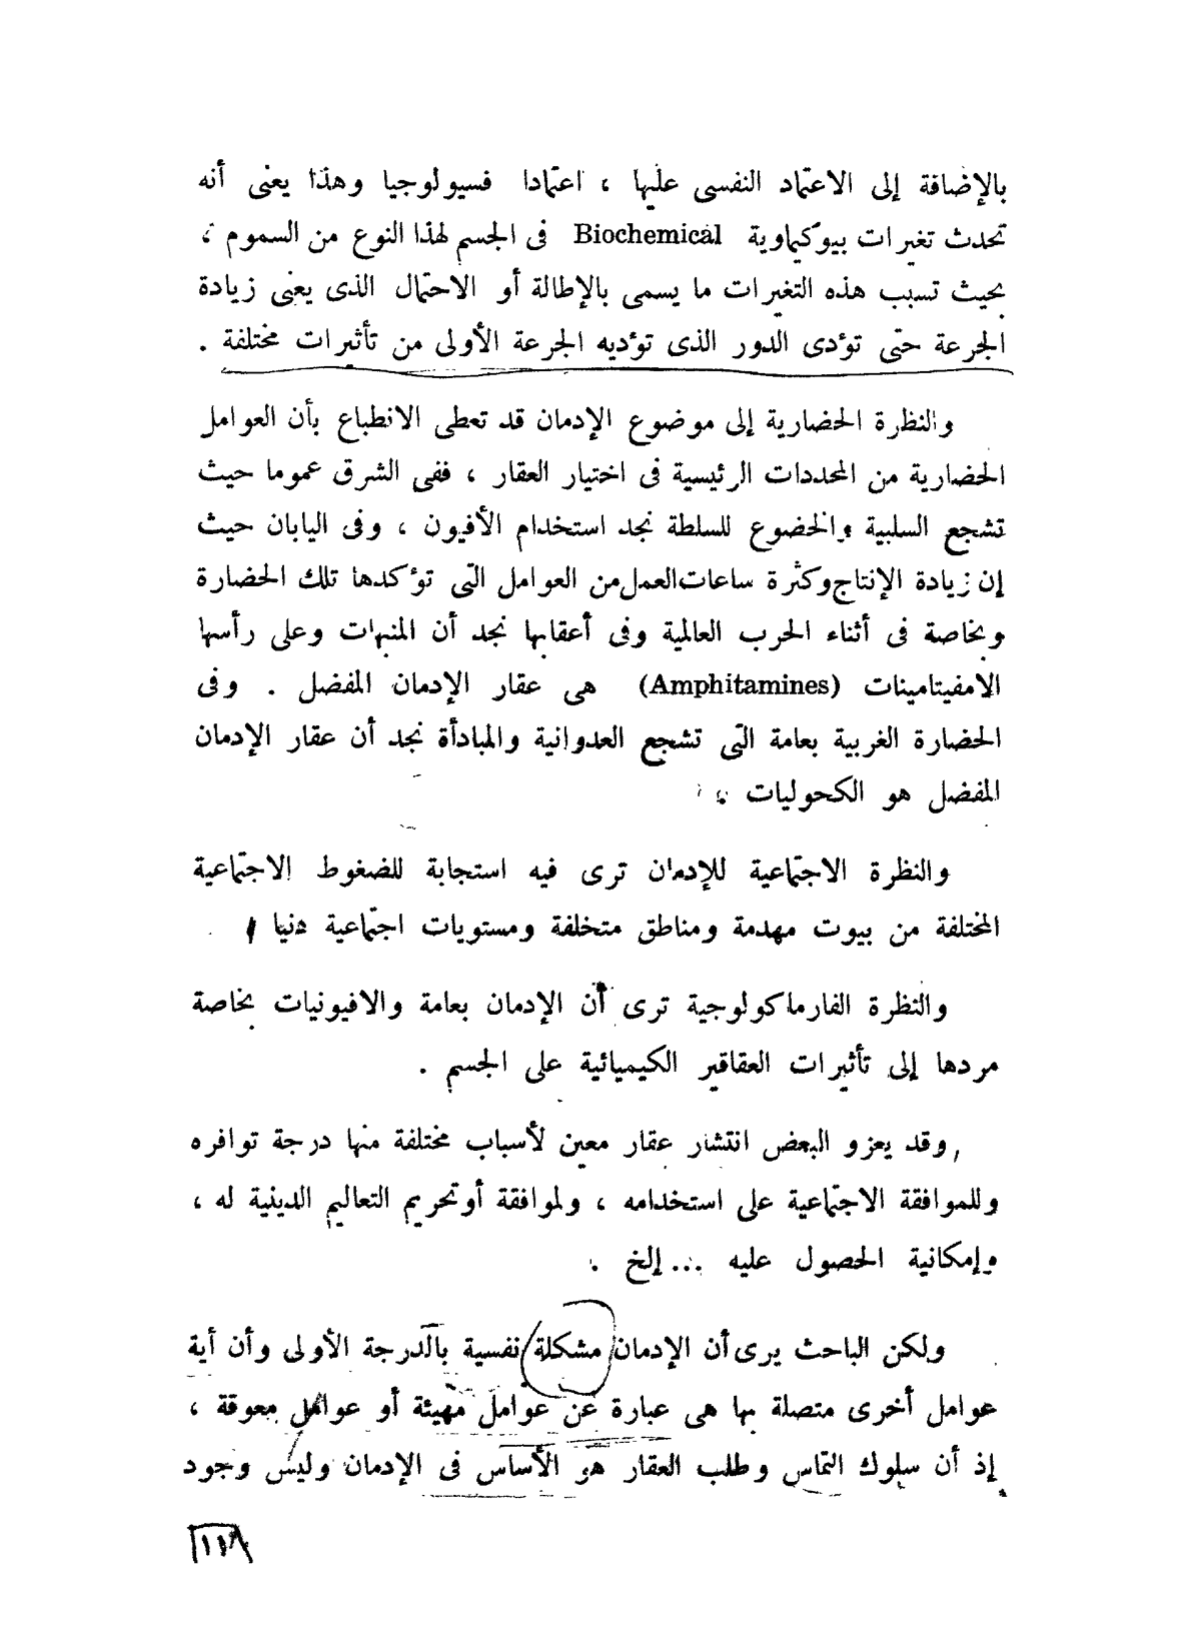 بالإضافة إلى الاعتماد النفسى عليها ، اعتمادا فسيولوجيا وهذا يعنى أنه
تحدث تغيرات بيوكيماوية Biochemical فى الجسم لهذا النوع من السموم ،
بحيث تسبب هذه التغيرات ما يسمى بالإطالة أو الاحتمال الذى يعنى زيادة
الجرعة حتى تؤدى الدور الذى تؤديه الجرعة الأولى من تأثيرات مختلفة .
والنظرة الحضارية إلى موضوع الإدمان قد تعطى الانطباع بأن العوامل
الحضارية من المحددات الرئيسية فى اختيار العقار ، ففى الشرق عموما حيث
تشجع السلبية والخضوع للسلطة نجد استخدام الأفيون ، وفى اليابان حيث
إن زيادة الإنتاج وكثرة ساعات العمل من العوامل التى تؤكدها تلك الحضارة
وبخاصة فى أثناء الحرب العالمية وفى أعقابها نجد أن المنبهات وعلى رأسها
الامفيتامينات (Amphitamines) هى عقار الإدمان المفضل . وفى
الحضارة الغربية بعامة التى تشجع العدوانية والمبادأة نجد أن عقار الإدمان
المفضل هو الكحوليات ،
والنظرة الاجتماعية للإدمان ترى فيه استجابة للضغوط الاجتماعية
المختلفة من بيوت مهدمة ومناطق متخلفة ومستويات اجتماعية دنيا
والنظرة الفارماكولوجية ترى أن الإدمان بعامة والافيونيات بخاصة
مردها إلى تأثيرات العقاقير الكيميائية على الجسم .
وقد يعزو البعض انتشار عقار معين لأسباب مختلفة منها درجة توافره
وللموافقة الاجتماعية على استخدامه ، ولموافقة أو تحريم التعاليم الدينية له ،
وإمكانية الحصول عليه ... إلخ .
ولكن الباحث يرى أن الإدمان مشكلة نفسية بالدرجة الأولى وأن أية
عوامل أخرى متصلة بها هى عبارة عن عوامل مهيئة أو عوامل معوقة ،
إذ أن سلوك التماس وطلب العقار هو الأساس فى الإدمان وليس وجود